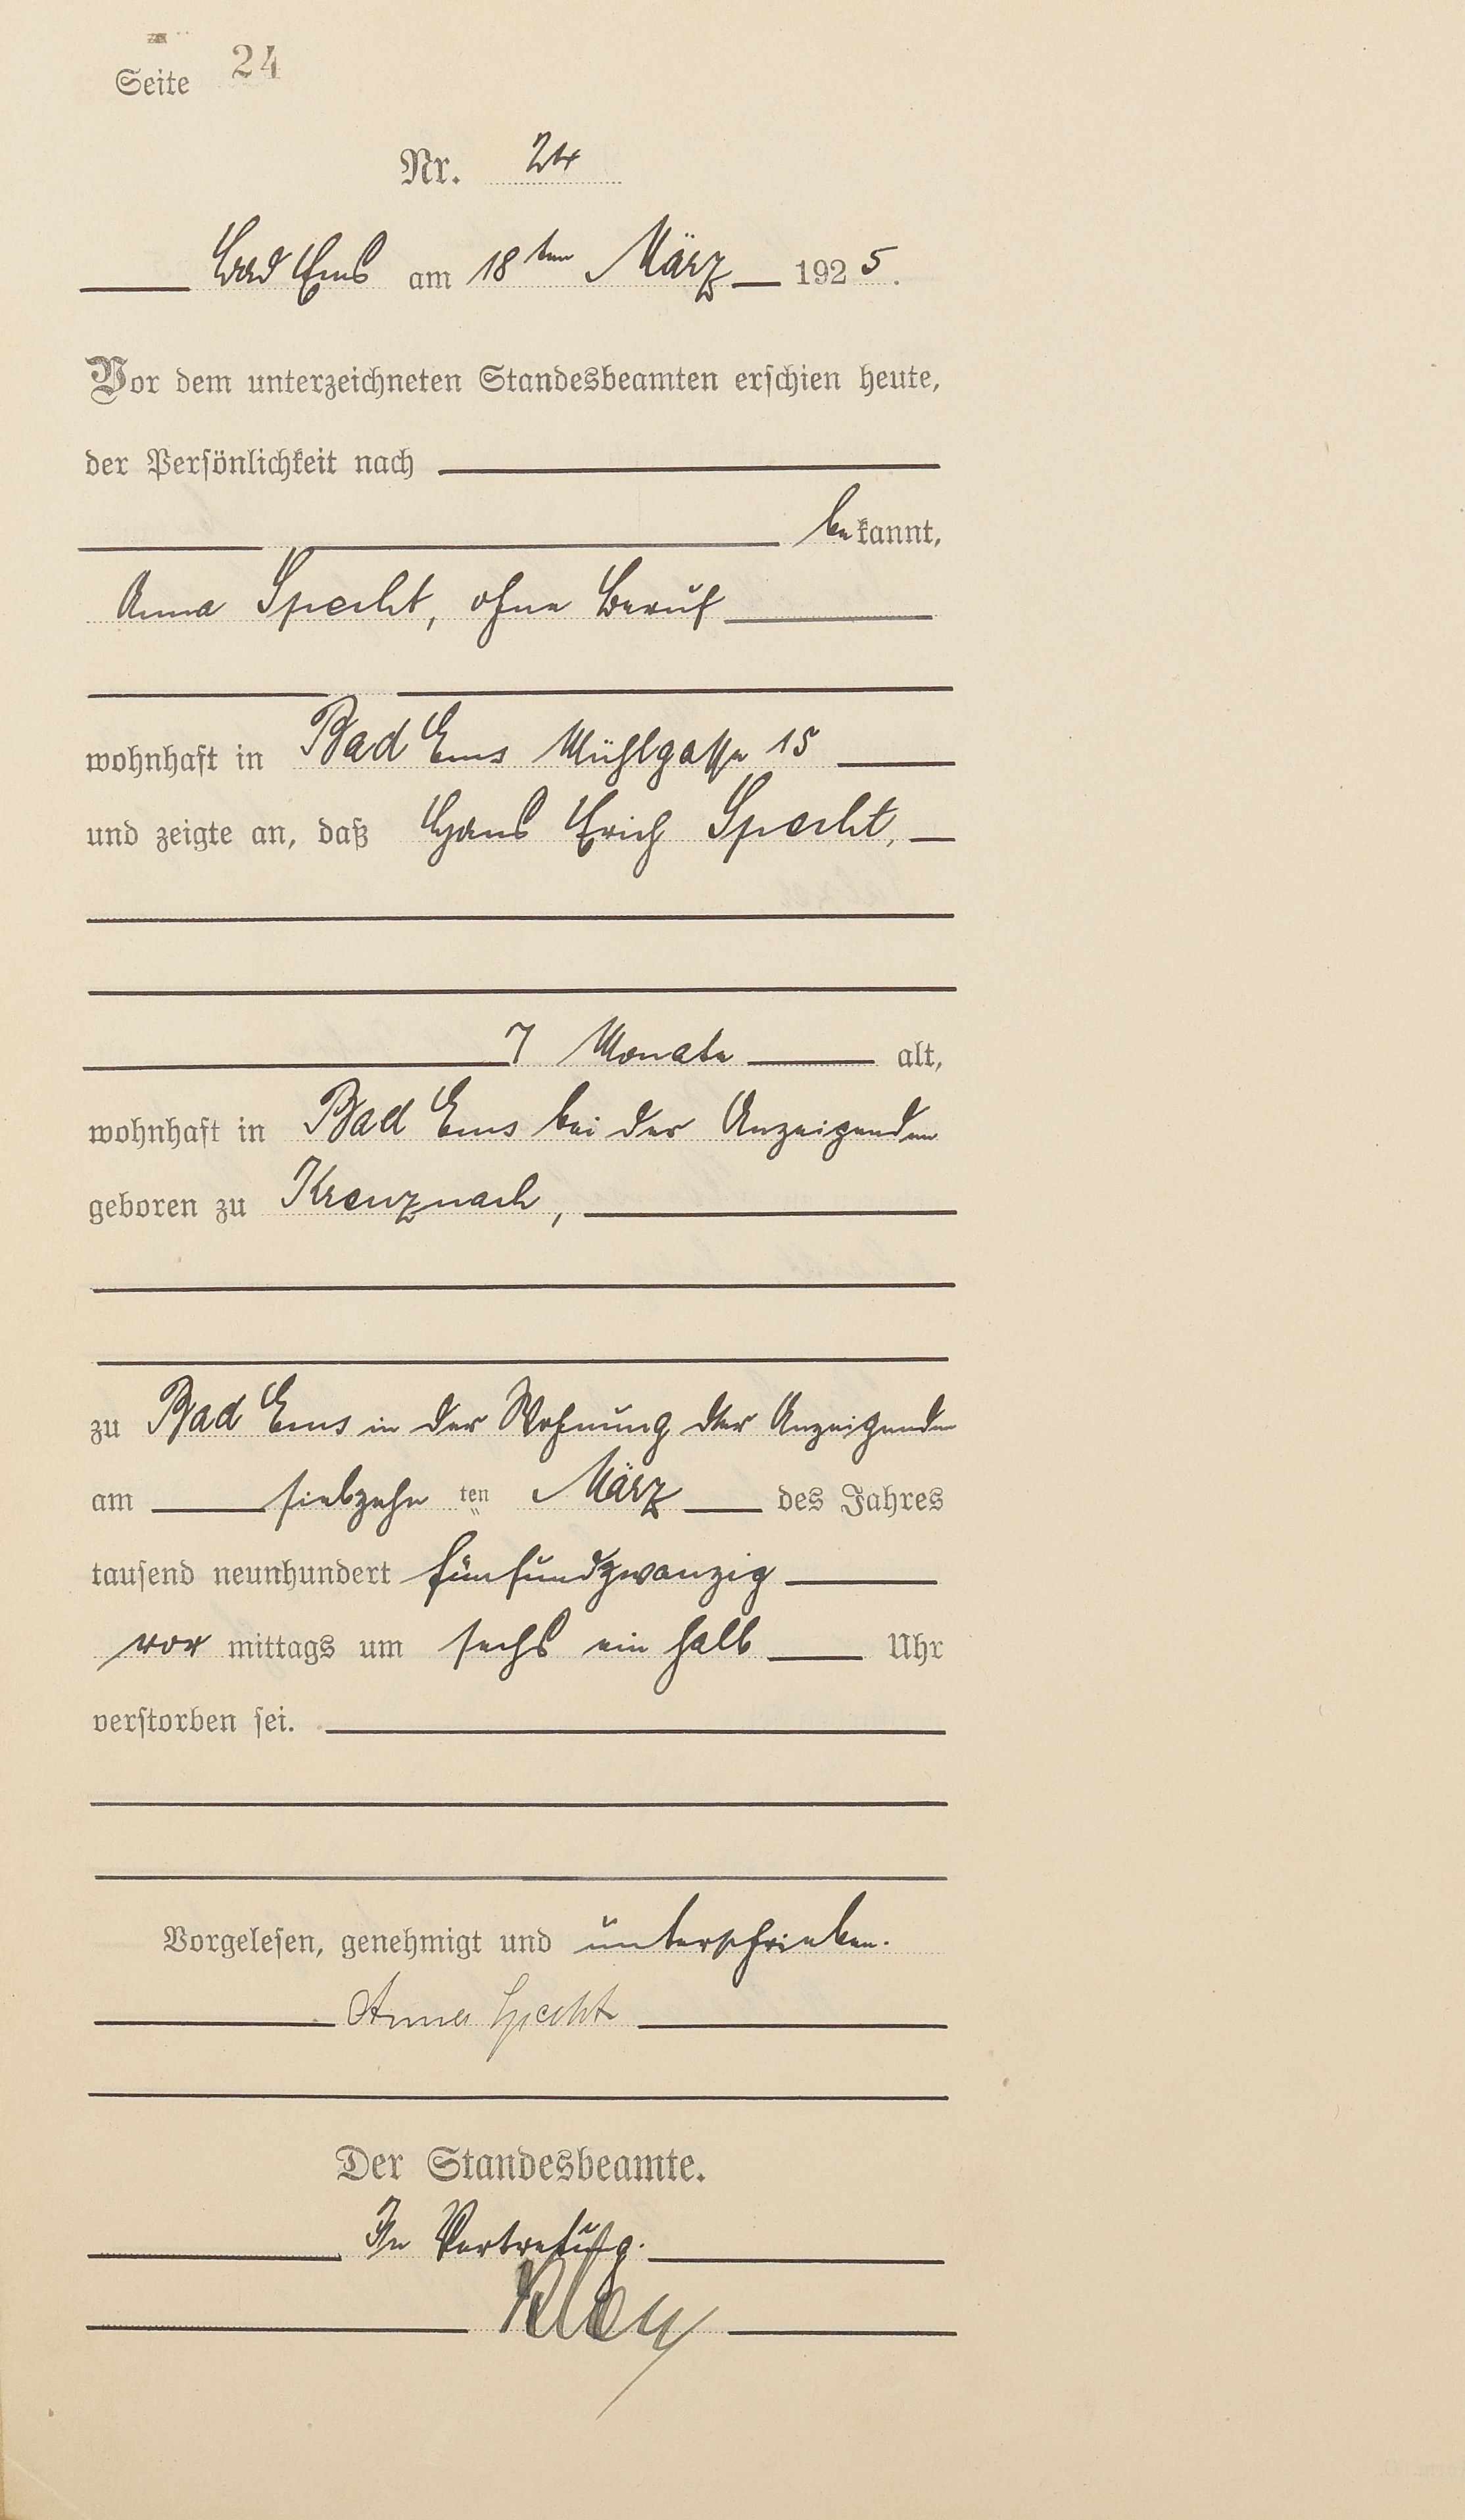 Seite 24
Nr. 24
Bad Ems am 18ten März 1925.
Vor dem unterzeichneten Standesbeamten erschien heute,
der Persönlichkeit nach
bekannt,
Anna Specht, ohne Beruf
wohnhaft in Bad Ems Mühlgasse 15
und zeigte an, daß Hans Erich Specht,
7 Monate alt,
wohnhaft in Bad Ems bei der Anzeigenden
geboren zu Kreuznach,
zu Bad Ems in der Wohnung der Anzeigenden
am siebzehn ten März des Jahres
tausend neunhundert fünfundzwanzig
vor mittags um sechs ein halb Uhr
verstorben sei.
Vorgelesen, genehmigt und unterschrieben.
Anna Specht
Der Standesbeamte.
In Vertretung.